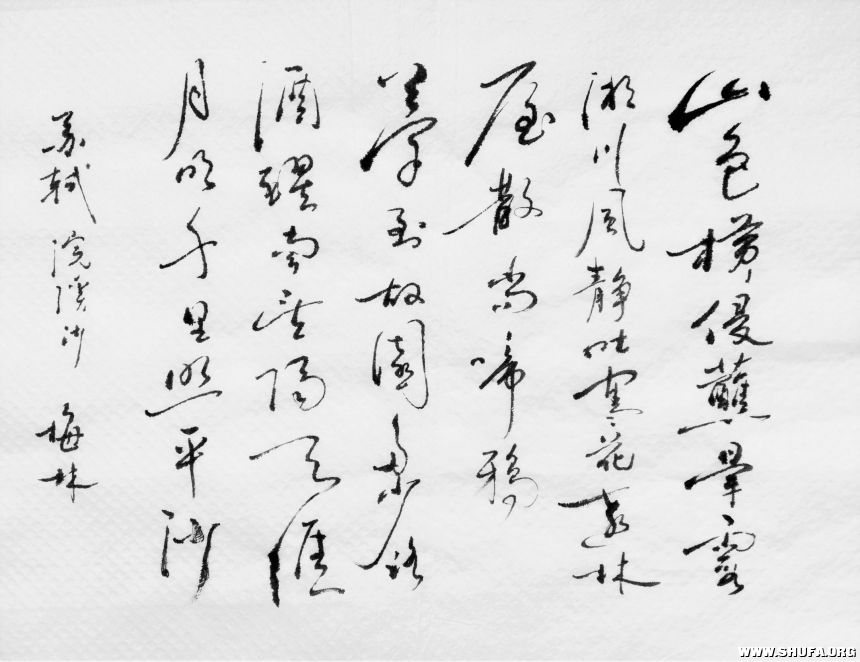 山色橫侵蘸暈霞
湘川風靜吐寒花遠林
屋散尚啼鴉
夢到故園多少路
酒醒南望隔天涯
月明千里照平沙
苏軾 浣溪沙 梅林
WWW.SHUFA.ORG